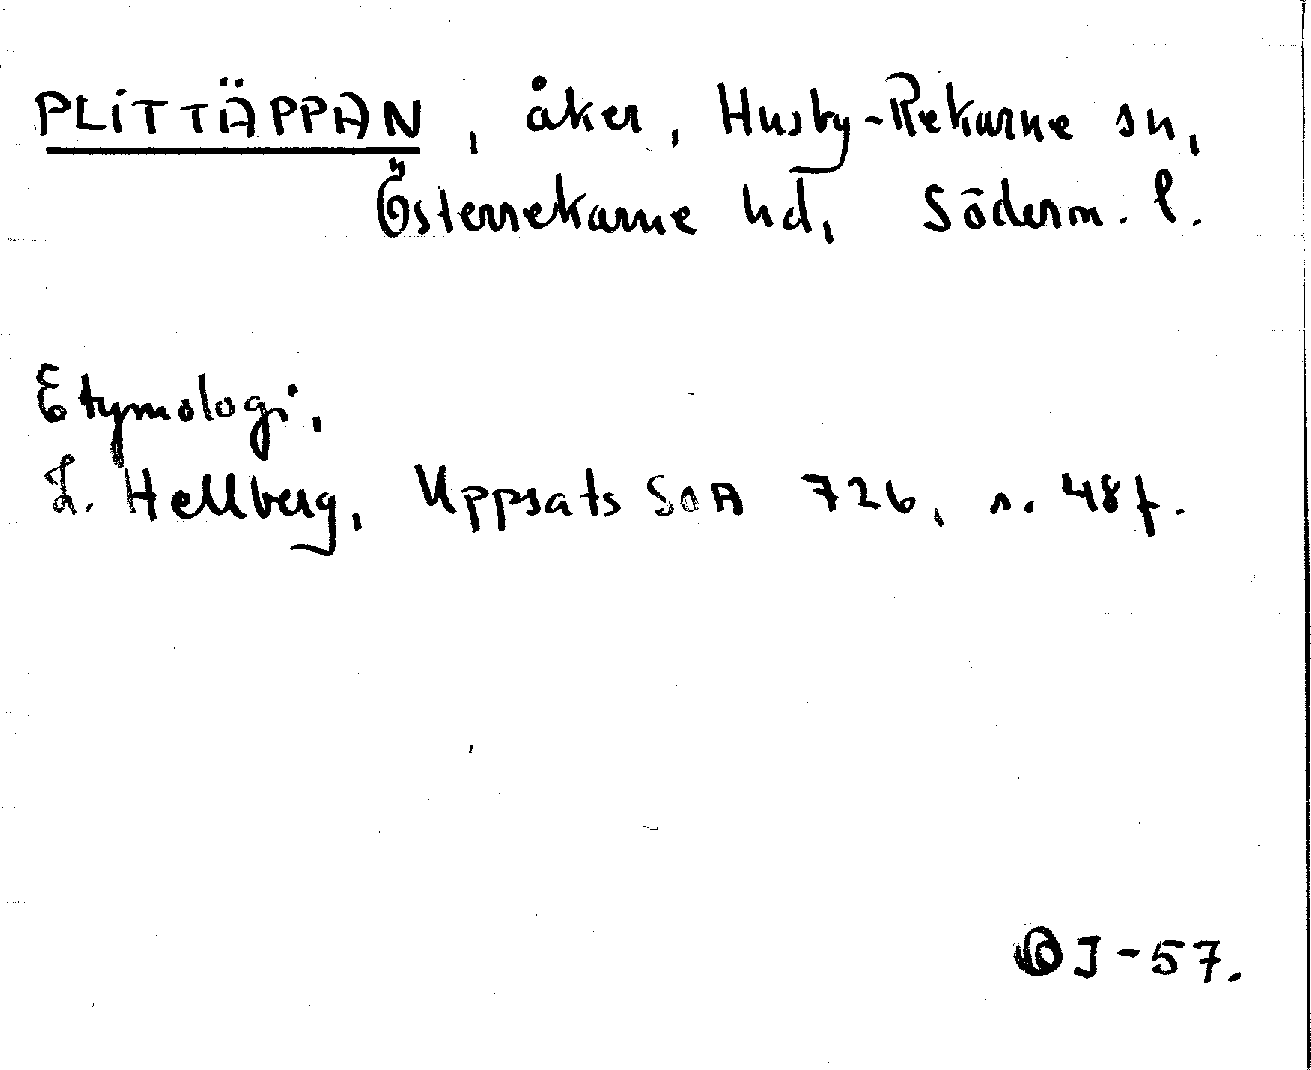 PLiTTÄPPAN, åker, Husby-Rekarne sn,
Österrekarne hd, Söderm. l.
Etymologi.
L. Hellberg, Uppsats SOA 726, s. 48 f.
OJ-57.